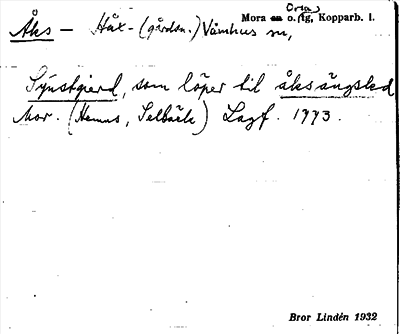 Åks – Håx- (gårdsn.) Våmhus sn,
Orsa
Mora sn o. tg, Kopparb. l.
Synstgierd, som löper til åksängsled
Mor. (Hemus, Selbäck) Lagf. 1773.
Bror Lindén 1932